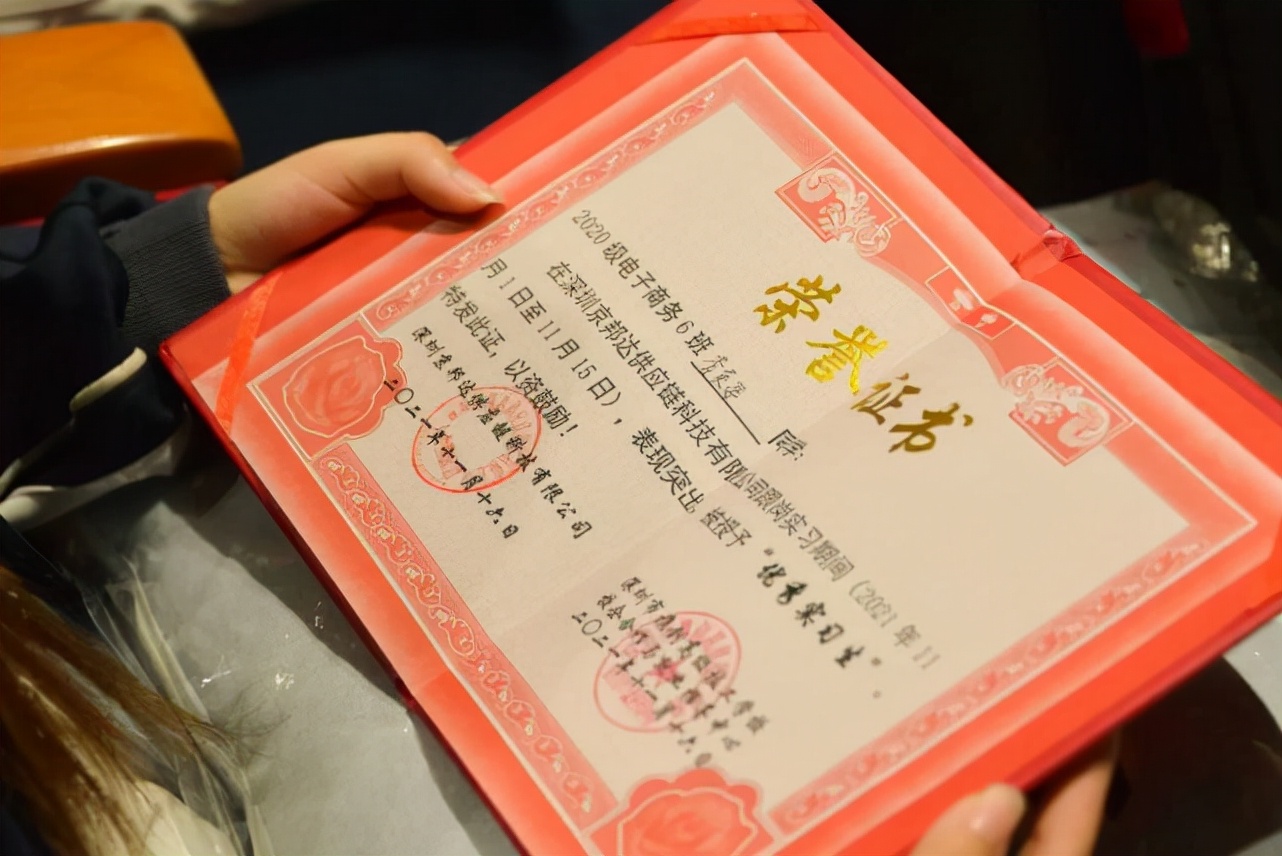 荣誉证书
2020级电子商务6班 同学:
在深圳京邦达供应链科技有限公司跟岗实习期间（2021年11
月1日至11月15日），表现突出，兹授予“优秀实习生”。
特发此证，以资鼓励！
深圳京邦达供应链科技有限公司
二〇二一年十一月十六日
深圳市
二〇二一年十一月十六日